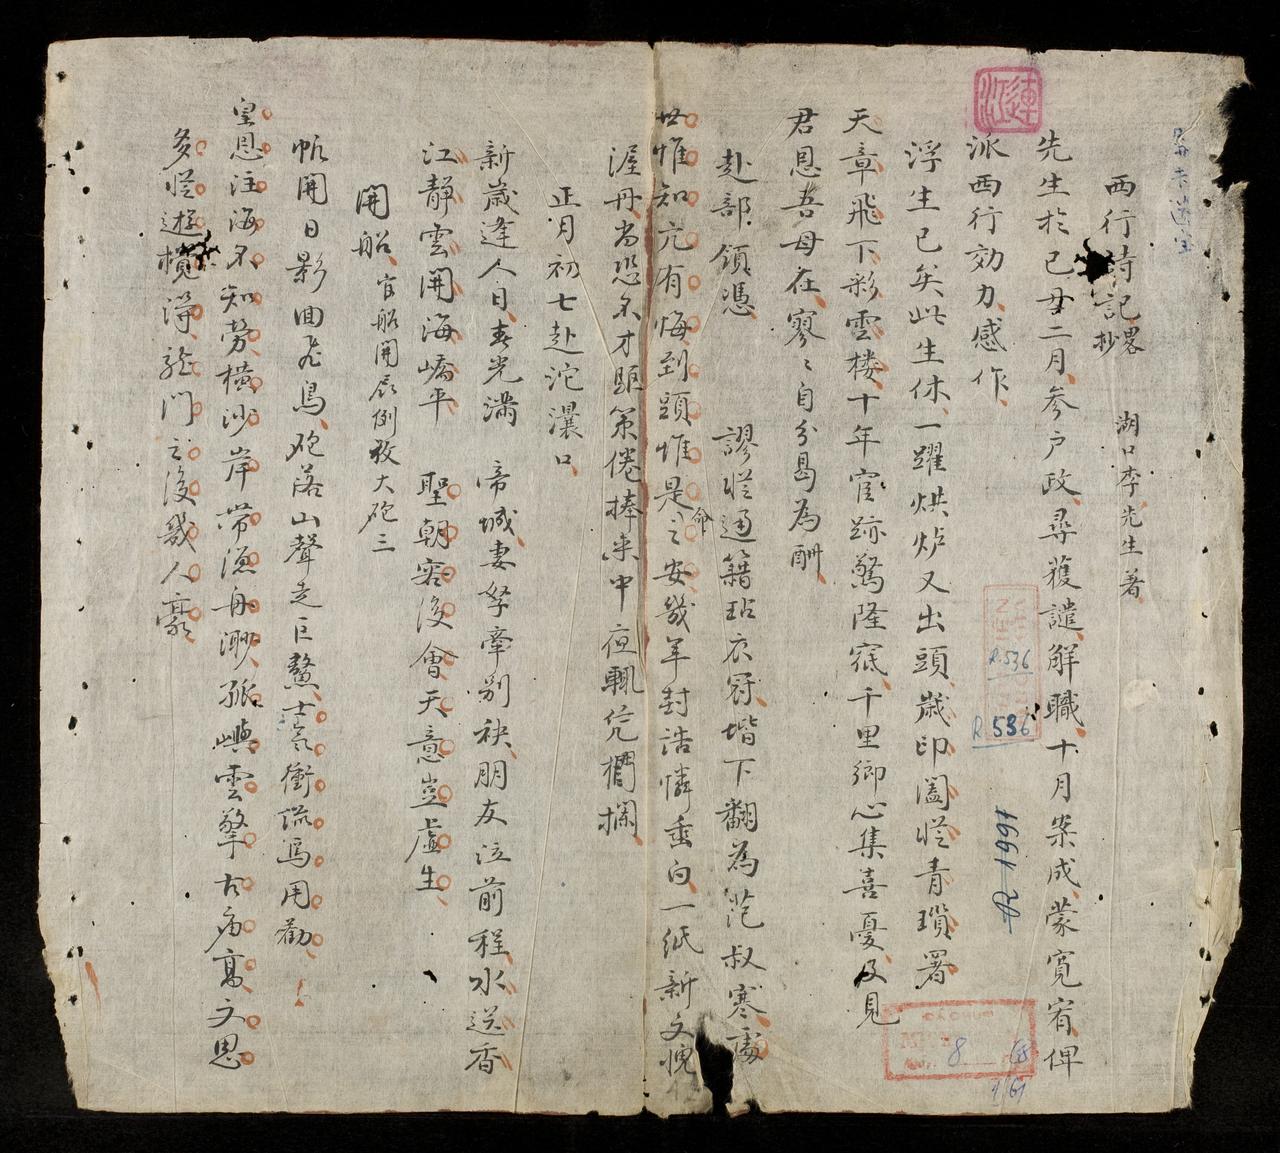 西行詩記畧抄 湖口李先生著
先生於己丑二月參户政尋獲譴解職十月案成蒙寬宥俾
派西行効力感作
浮生已矣此生休一躍烘炉又出頭歲印闔 青瑣署
天章飛下彩雲楼十年宦跡驚隆 千里鄉心集喜憂及見
君恩吾母在寥〻自分曷為酬
赴部領憑 謬 通籍玷衣冠堦下翻為范叔寒處
世惟知亢有悔到頭惟是命之安幾年封誥憐垂白一紙新文愧
渥丹尚恐不才 策倦捧來中夜輒凭欄
正月初七赴沱灢口
新歲逢人日春光滿 帝城妻孥牽别袂朋友泣前程水送香
江静雲開海嶠平 聖朝容後會天意豈虛生
開船 官船開辰例放大砲三
帆開日影回飛鳥砲落山聲走巨鰲士氣衝 焉用勸
皇恩注海不知勞横沙岸帶漁舟渺孤嶼雲擎古庙高文思
多 遊欖 龍門之後幾人豪
連派
R.536
R 536
R 1991
8